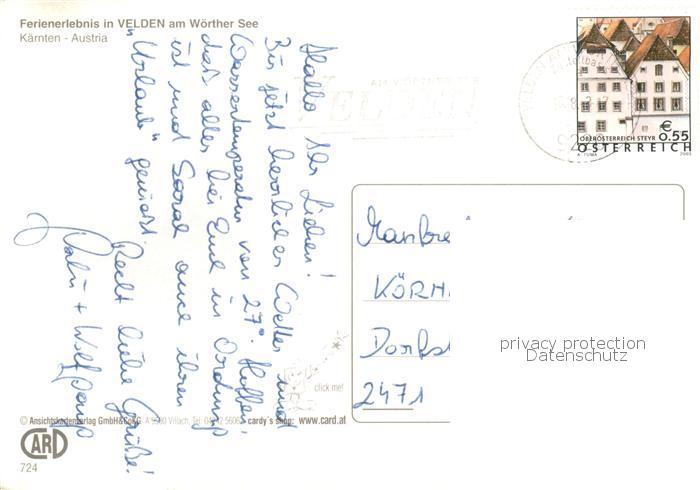 Ferienerlebnis in VELDEN am Wörther See
Kärnten - Austria
Hallo Ihr Lieben!
Bis jetzt herrliches Wetter und
Wassertemperatur von 27°. Hoffen,
daß alles bei Euch in Ordnung
ist und Sarah auch ihren
"Urlaub" genießt.
Recht liebe Grüße!
+ Wolfgang
AM WÖRTHER
VELDEN
OBERÖSTERREICH STEYR
€ 0.55
ÖSTERREICH
A. TUMA
2003
Manfre
KÖRN
Dorfst
2471
privacy protection
Datenschutz
click me!
© Ansichtskartenverlag GmbH&CoKG, A 9500 Villach, Tel. cardy's shop: www.card.at
CARD
724